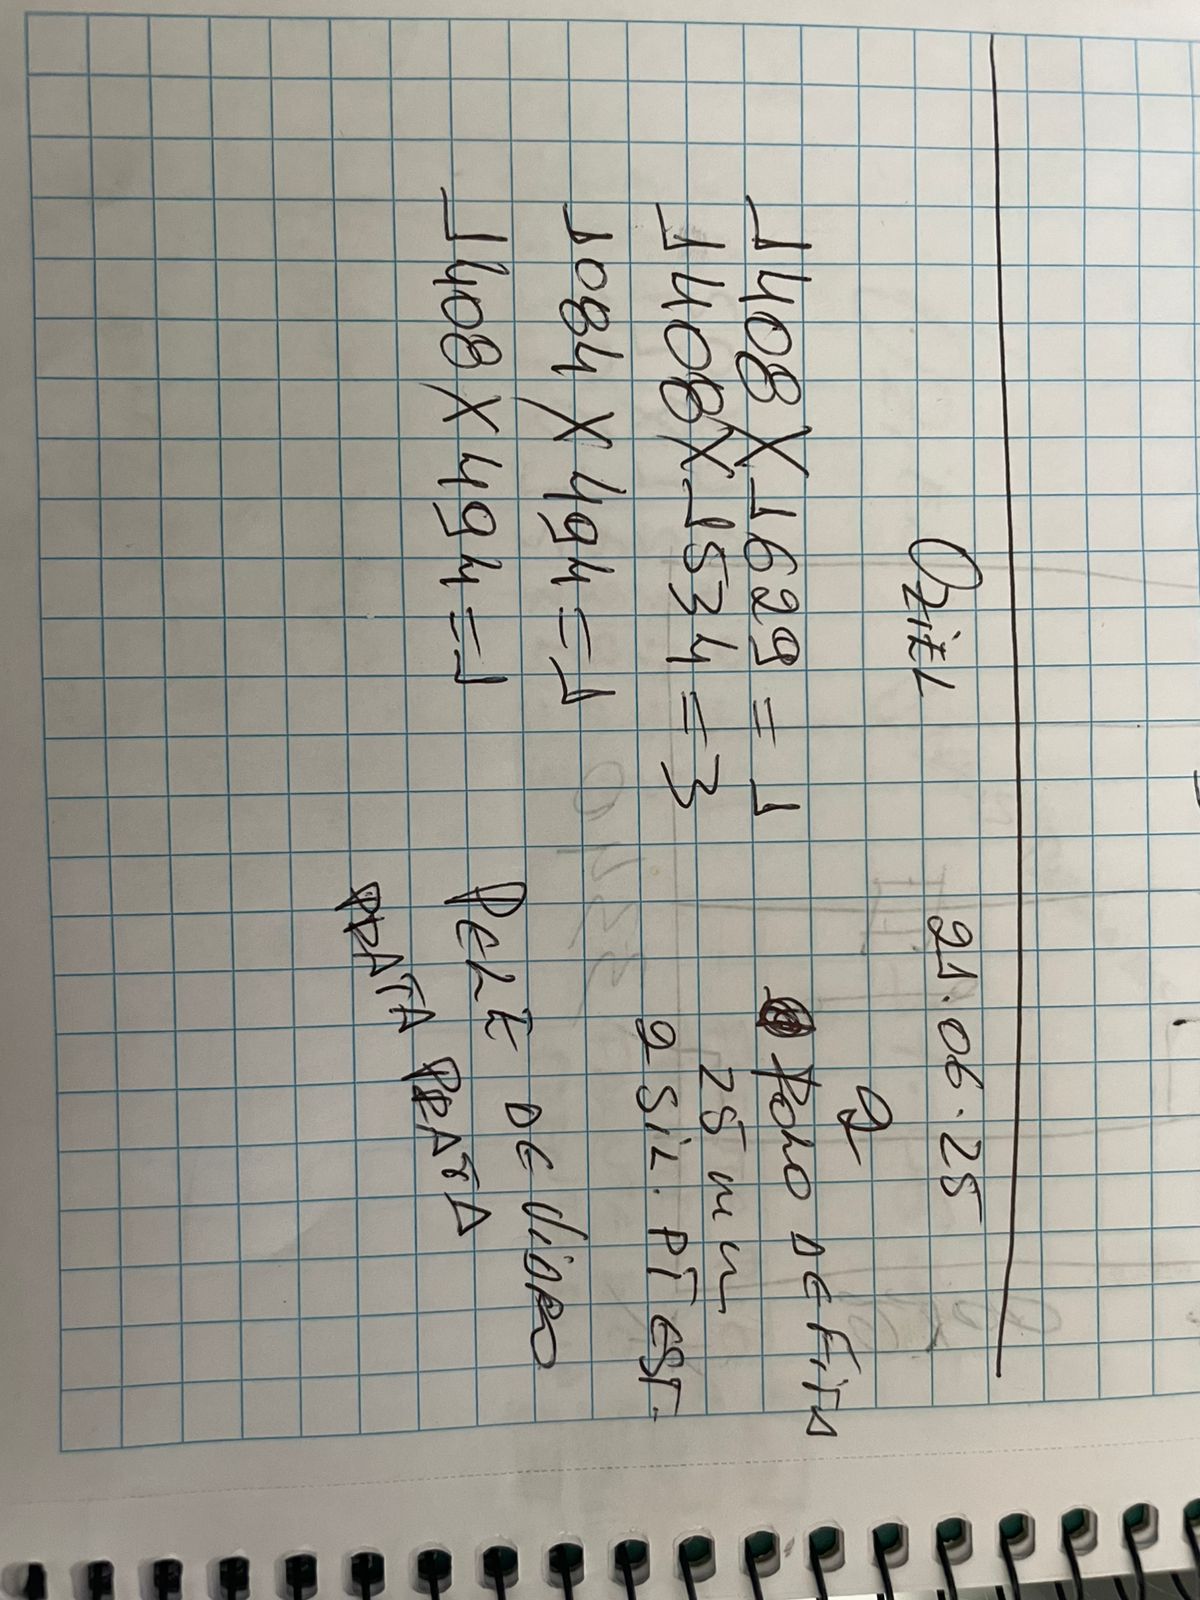 Oziel 21.06.25
1408 X 1629 = 1
1408 X 1534 = 3
1084 X 494 = 1
1408 X 494 = 1
2
ROLO DE FITA
25 m m
2 SIL. PT EST.
PELE DE VIDRO
PRATA PRATA